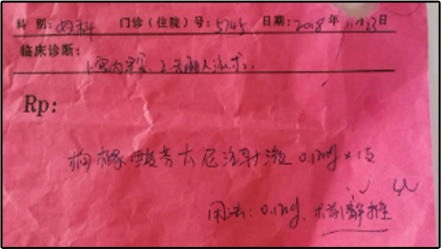 科别：妇科 门诊（住院）号：5745 日期：2018年11月23日
临床诊断：
1.宫内早孕 2.无痛人流术.
Rp:
枸橼酸芬太尼注射液 0.1mg×1支
用法：0.1mg. 术前静推